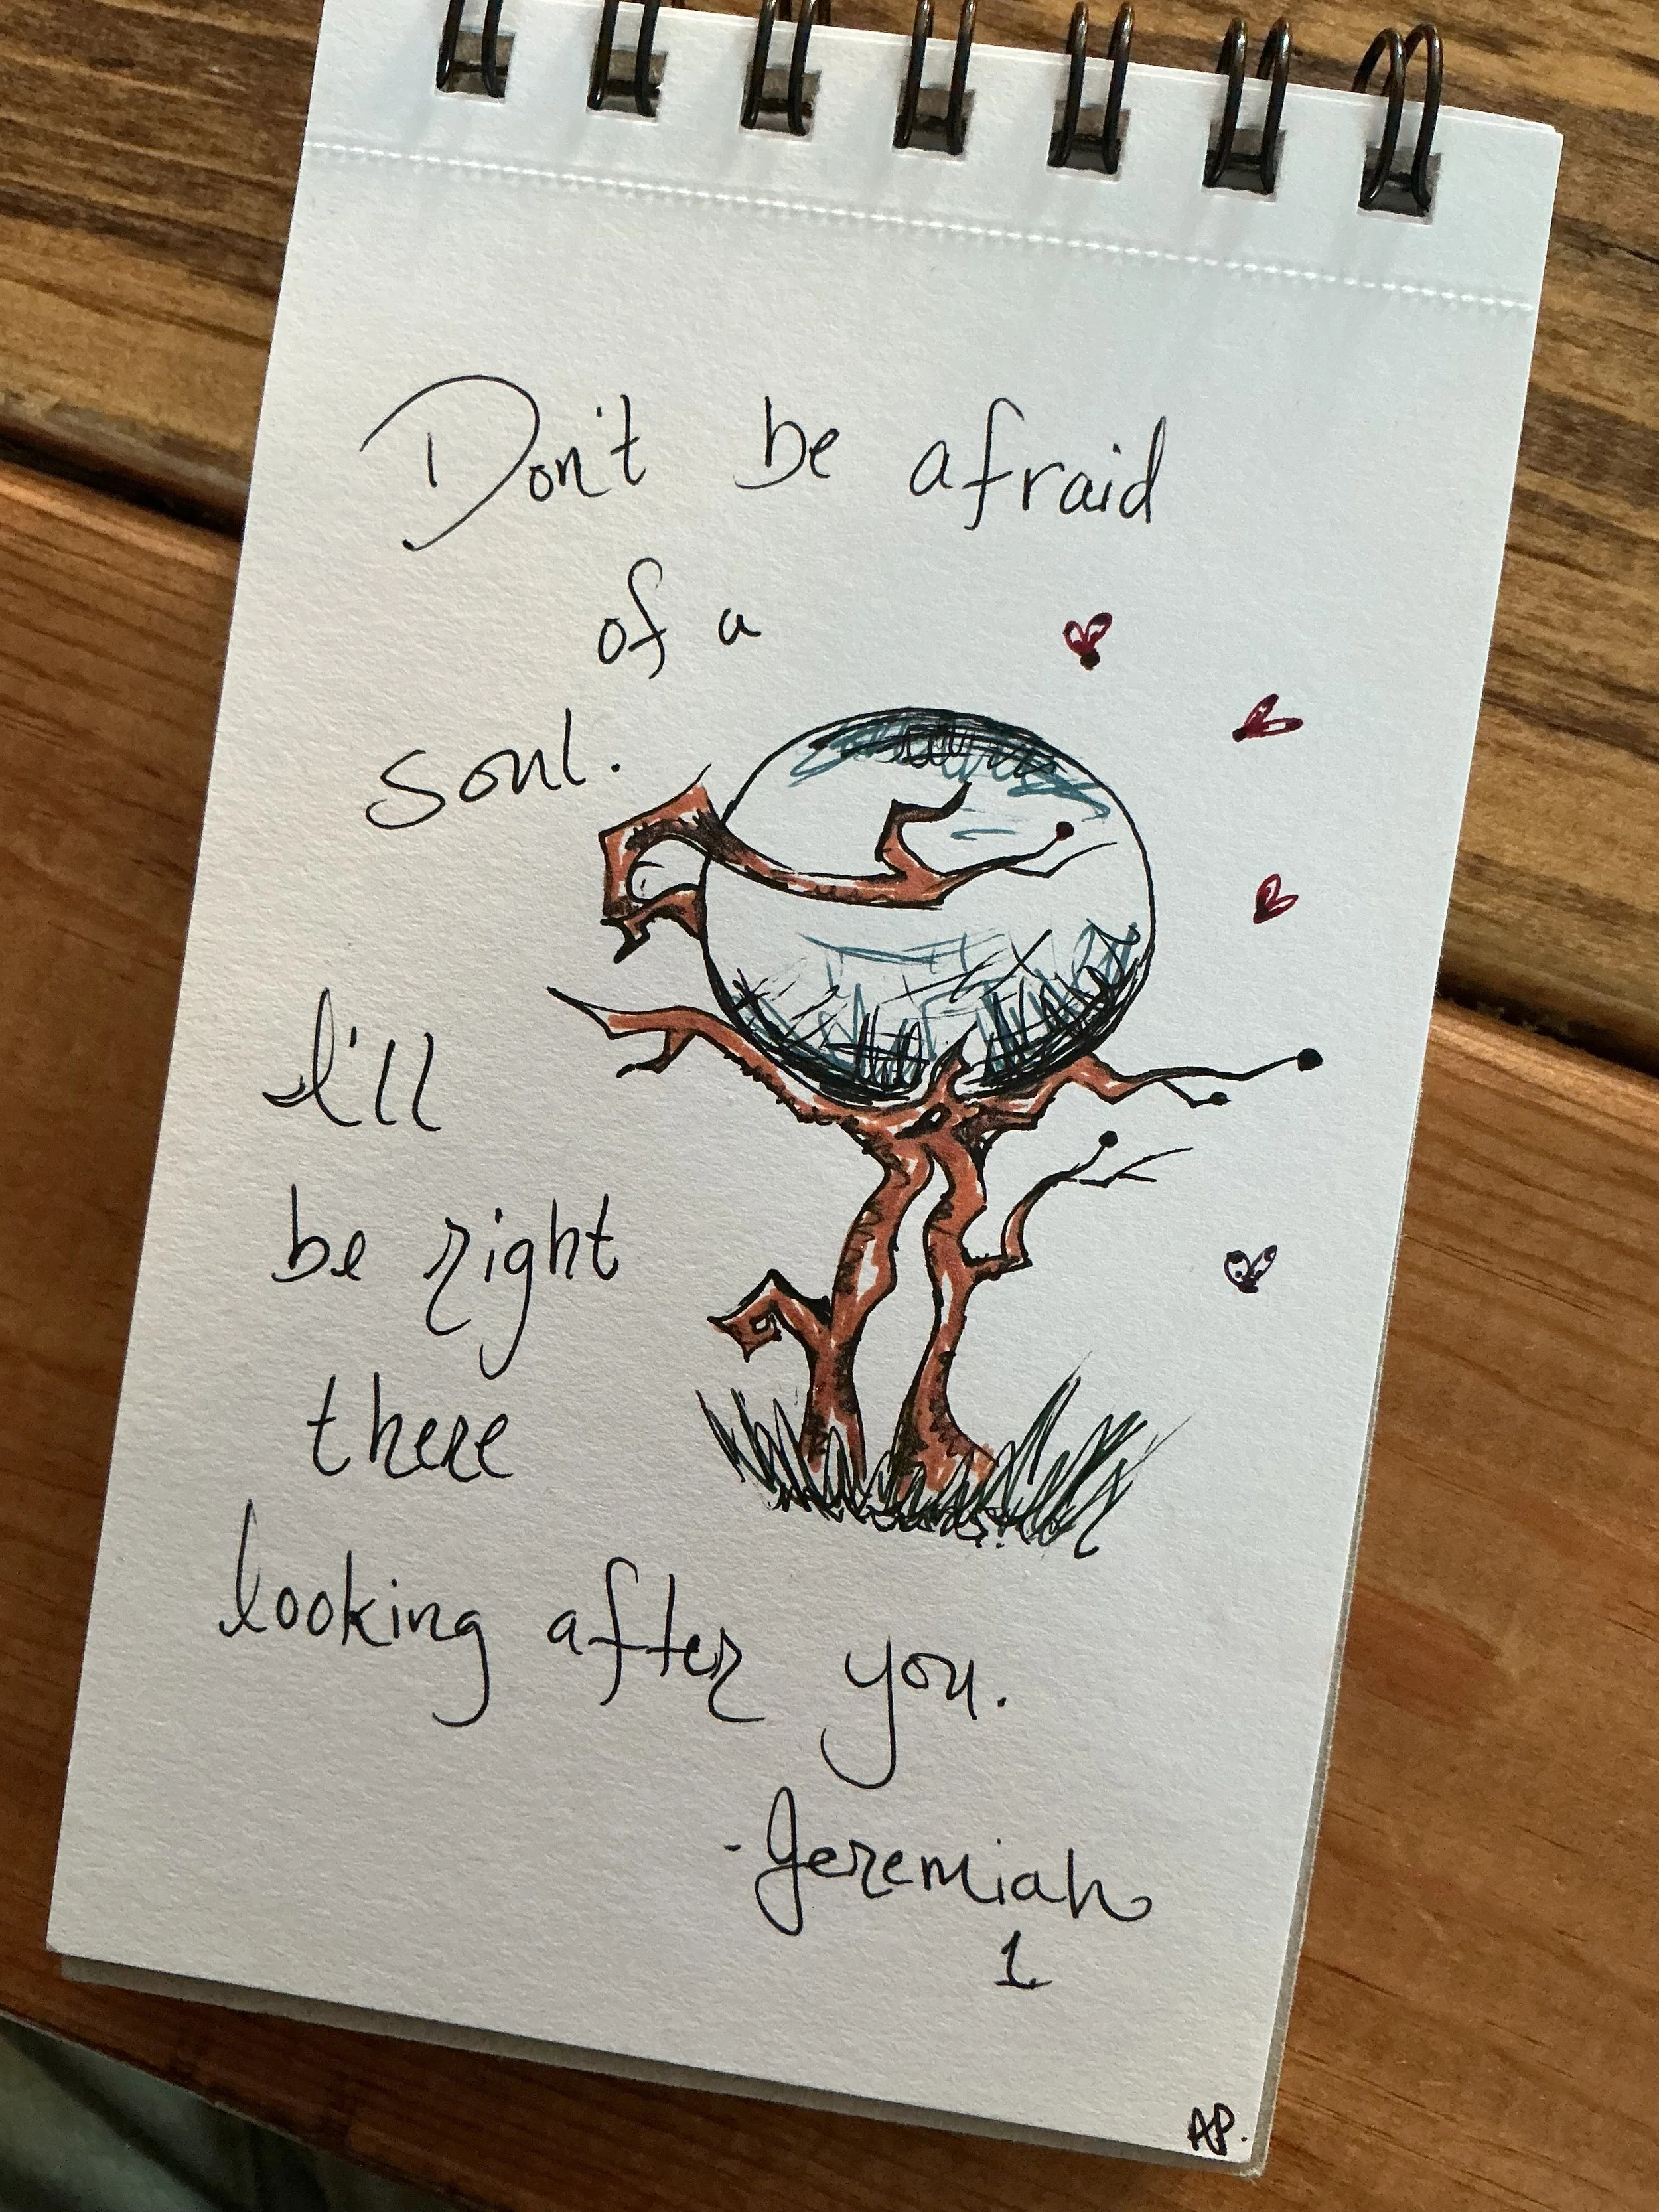 Don't be afraid
of a
soul.
I'll
be right
there
looking after you.
-Jeremiah
1
AP.